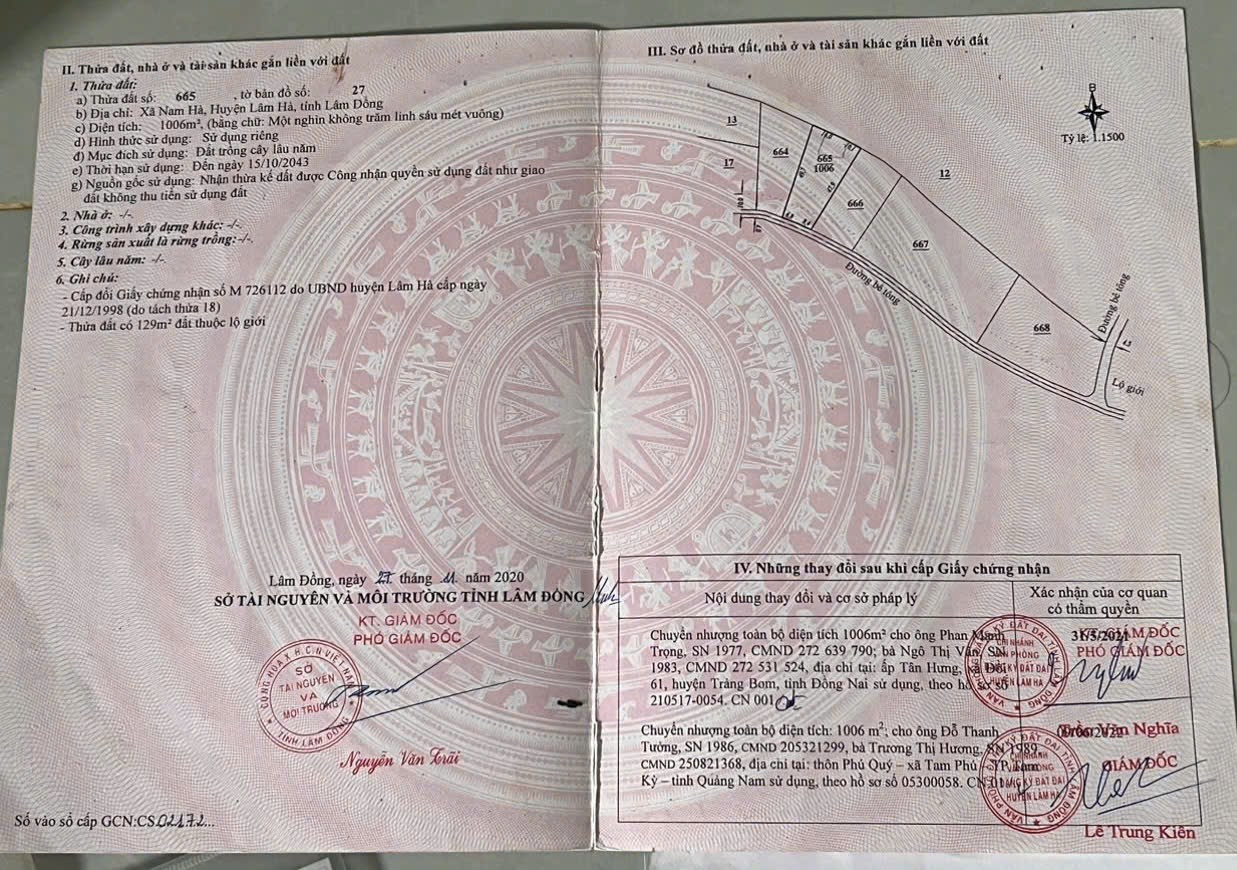 II. Thửa đất, nhà ở và tài sản khác gắn liền với đất
1. Thửa đất:
a) Thửa đất số: 665 , tờ bản đồ số: 27
b) Địa chỉ: Xã Nam Hà, Huyện Lâm Hà, tỉnh Lâm Đồng
c) Diện tích: 1006m², (bằng chữ: Một nghìn không trăm linh sáu mét vuông)
d) Hình thức sử dụng: Sử dụng riêng
đ) Mục đích sử dụng: Đất trồng cây lâu năm
e) Thời hạn sử dụng: Đến ngày 15/10/2043
g) Nguồn gốc sử dụng: Nhận thừa kế đất được Công nhận quyền sử dụng đất như giao
đất không thu tiền sử dụng đất
2. Nhà ở: -/-.
3. Công trình xây dựng khác: -/-.
4. Rừng sản xuất là rừng trồng: -/-.
5. Cây lâu năm: -/-.
6. Ghi chú:
- Cấp đổi Giấy chứng nhận số M 726112 do UBND huyện Lâm Hà cấp ngày
21/12/1998 (do tách thửa 18)
- Thửa đất có 129m² đất thuộc lộ giới
Lâm Đồng, ngày 27 tháng 11 năm 2020
SỞ TÀI NGUYÊN VÀ MÔI TRƯỜNG TỈNH LÂM ĐỒNG
KT. GIÁM ĐỐC
PHÓ GIÁM ĐỐC
CỘNG HÒA X.H.C.N VIỆT NAM
SỞ
TÀI NGUYÊN
VÀ
MÔI TRƯỜNG
TỈNH LÂM ĐỒNG
Nguyễn Văn Trãi
Số vào sổ cấp GCN:CS02172...
III. Sơ đồ thửa đất, nhà ở và tài sản khác gắn liền với đất
B
Tỷ lệ: 1.1500
13
17
664
665
1006
666
12
667
668
Đường bê tông
Đường bê tông
Lộ giới
IV. Những thay đổi sau khi cấp Giấy chứng nhận
Nội dung thay đổi và cơ sở pháp lý
Xác nhận của cơ quan
có thẩm quyền
Chuyển nhượng toàn bộ diện tích 1006m² cho ông Phan Minh
Trọng, SN 1977, CMND 272 639 790; bà Ngô Thị Vân, SN
1983, CMND 272 531 524, địa chỉ tại: ấp Tân Hưng, xã Đồi
61, huyện Trảng Bom, tỉnh Đồng Nai sử dụng, theo hồ sơ số
210517-0054. CN 001
31/5/2021
KT. GIÁM ĐỐC
PHÓ GIÁM ĐỐC
Trần Văn Nghĩa
Chuyển nhượng toàn bộ diện tích: 1006 m²; cho ông Đỗ Thanh
Tưởng, SN 1986, CMND 205321299, bà Trương Thị Hương, SN 1989,
CMND 250821368, địa chỉ tại: thôn Phú Quý – xã Tam Phú – TP Tam
Kỳ – tỉnh Quảng Nam sử dụng, theo hồ sơ số 05300058. CN
GIÁM ĐỐC
Lê Trung Kiên